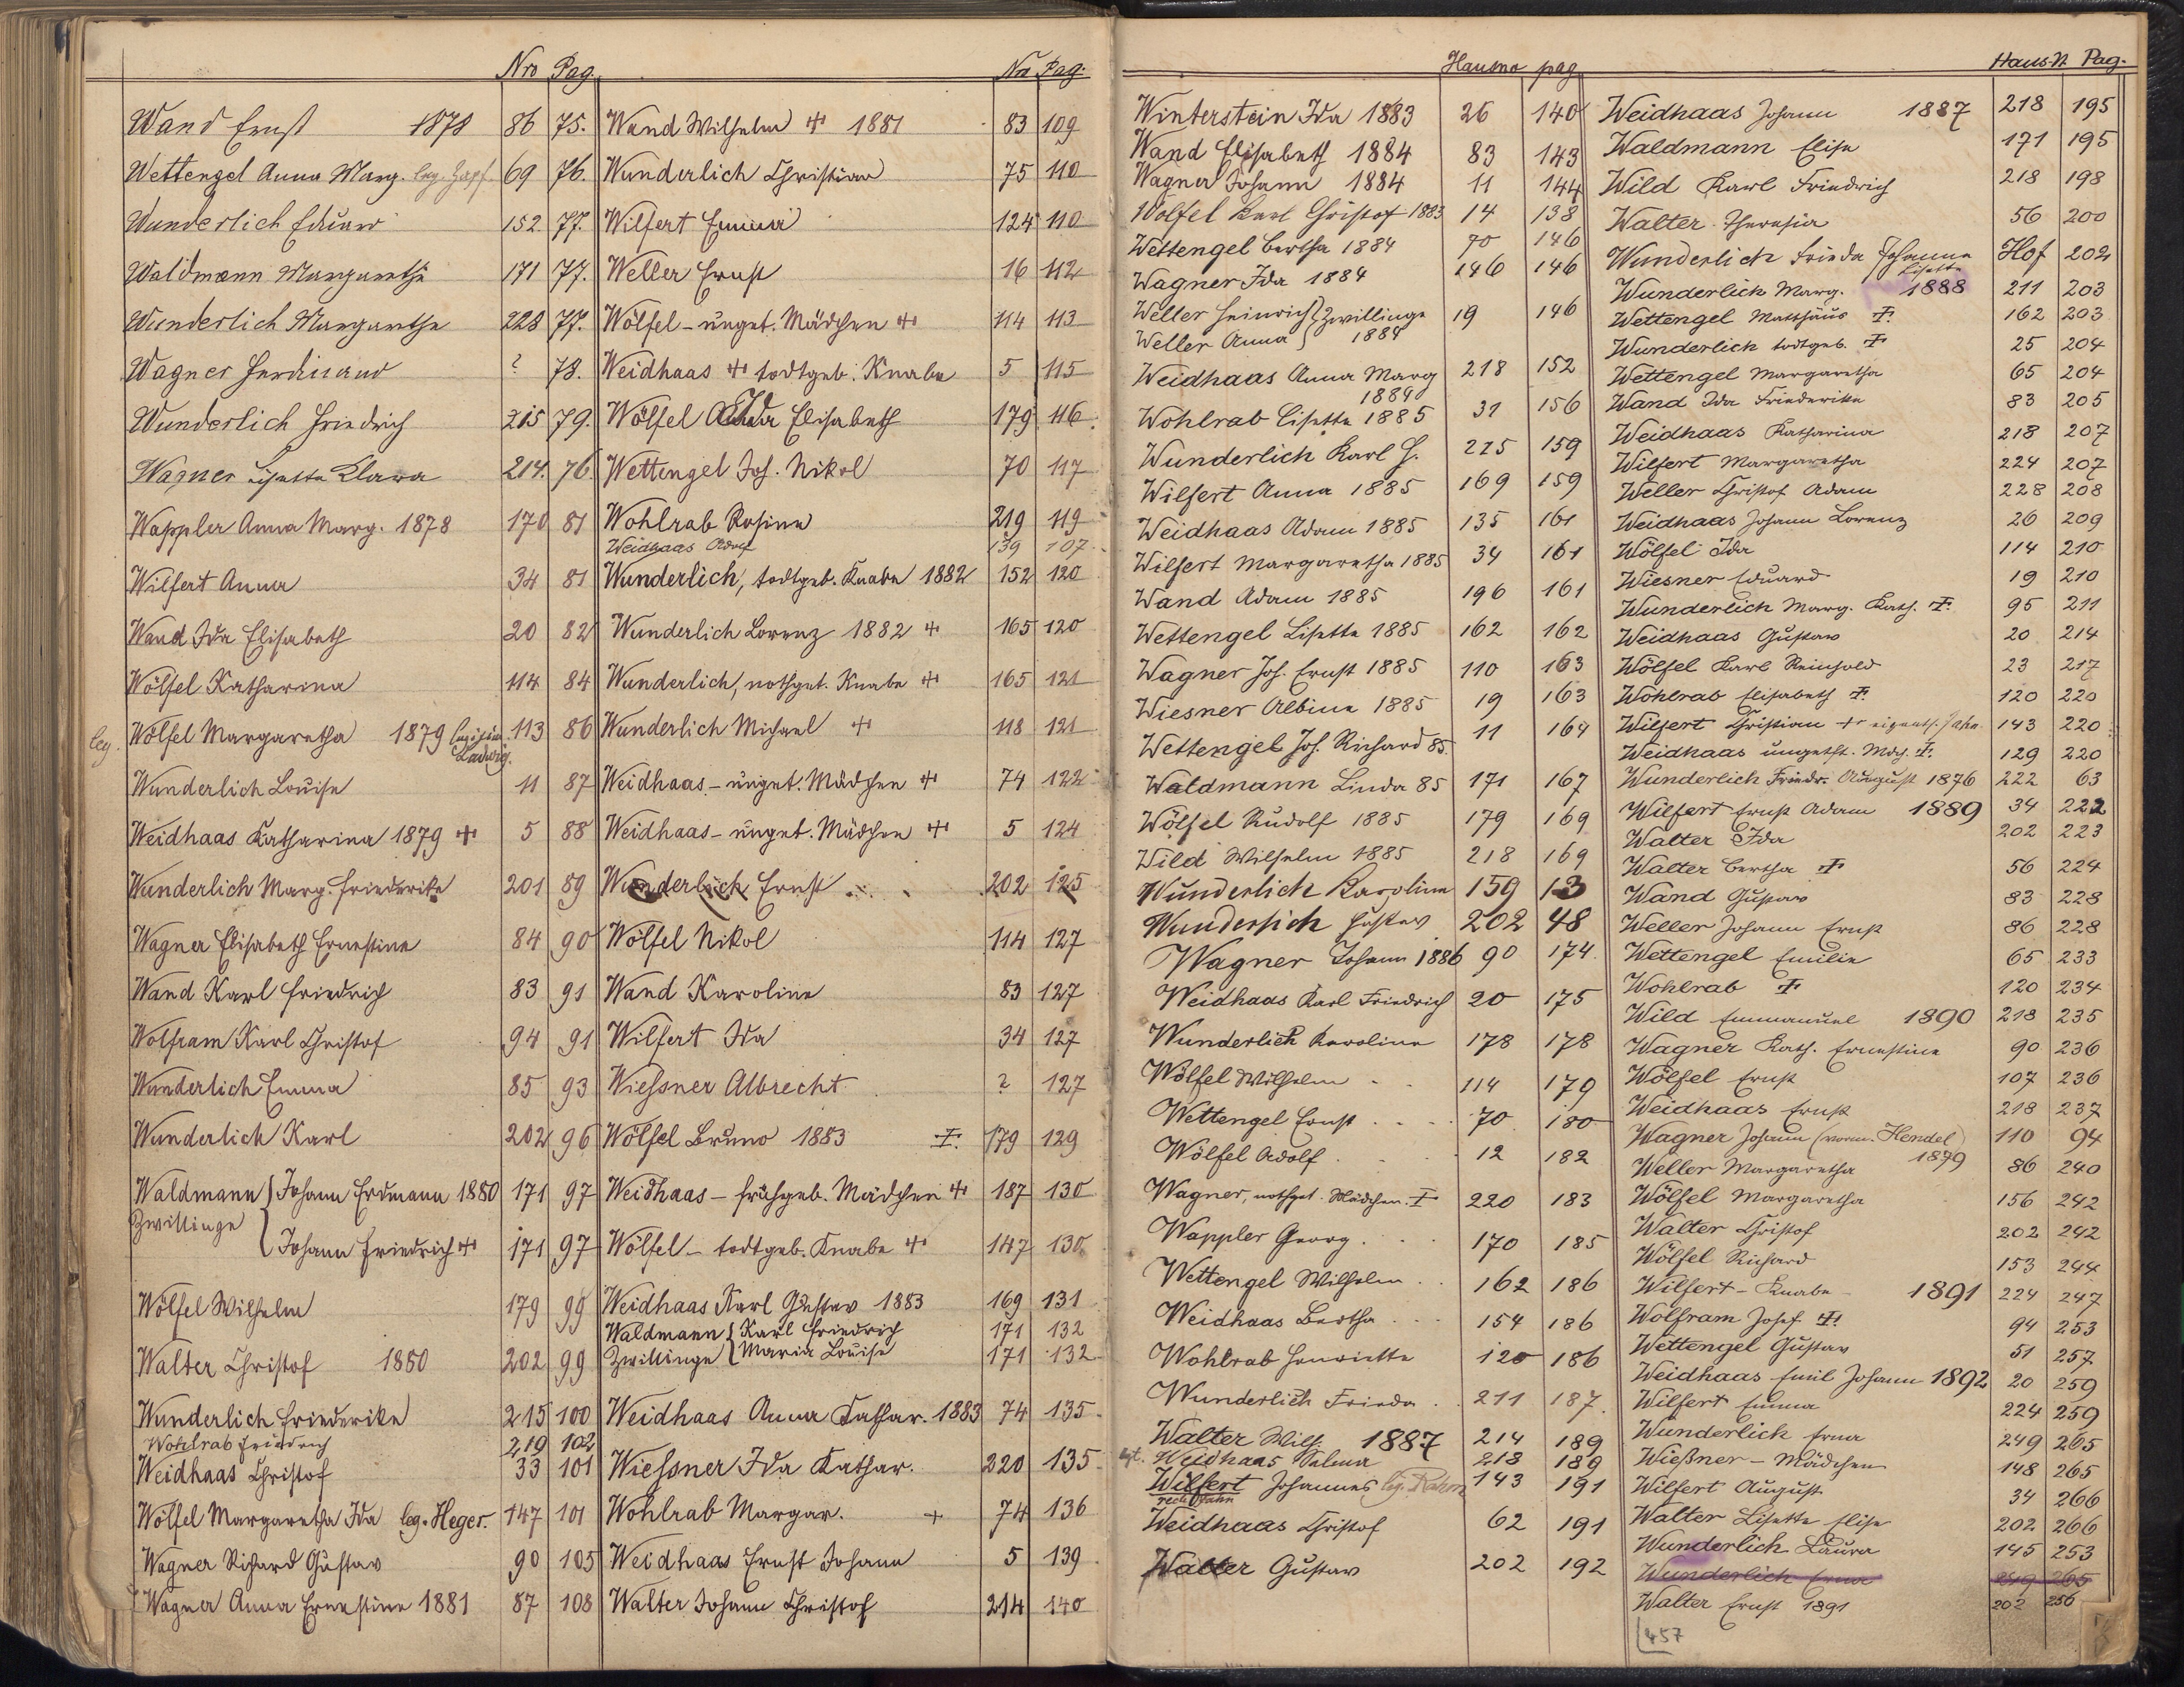 Nro Pag.
Wand Ernst 1878 86 75.
Wettengel Anna Marg. leg. Hopf. 69 76.
Wunderlich Eduard 152. 77.
Waldmann Margaretha 171 77.
Wunderlich Margaretha 228 77.
Wagner Ferdinand ? 78.
Wunderlich Friedrich 215 79.
Wagner Lisetta Klara 214. 76.
Wappler Anna Marg. 1878 170 81
Wilfert Anna 34 81
Wand Ida Elisabeth 20 82
Wölfel Katharina 114 84
leg. Wölfel Margaretha 1879 113 86
Ladwig.
Wunderlich Louise 11 87
Weidhaas Katharina 1879 + 5 88
Wunderlich Marg. Friederike 201 89
Wagner Elisabeth Ernestine 84 90
Wand Karl Friedrich 83 91
Wolfram Karl Christof 94 91
Wunderlich Emma 85 93
Wunderlich Karl 202 96
Waldmann { Johann Erdmann 1880 171 97
Zwillinge
{ Johann Friedrich + 171 97
Wölfel Wilhelm 179 99
Walter Christof 1880 202 99
Wunderlich Friederike 215 100
Wohlrab Friedrich 219 102
Weidhaas Christof 33 101
Wölfel Margaretha Ida leg. Heger. 147 101
Wagner Richard Gustav 90 105
Wagner Anna Ernestine 1881 87 108
Nro Pag.
Wand Wilhelm + 1881 83 109
Wunderlich Christian 75 110
Wilfert Emma 124 110
Weller Ernst 16 112
Wölfel - unget. Mädchen + 114 113
Weidhaas + todtgeb. Knabe 5 115
Wölfel Ida Elisabeth 179 116.
Wettengel Joh. Nikol 70 117
Wohlrab Rosina 219 119
Weidhaas Adolf 139 107
Wunderlich, todtgeb. Knabe 1882 152 120
Wunderlich Lorenz 1882 + 165 120
Wunderlich, nothget. Knabe + 165 121
Wunderlich Michael + 118 121
Weidhaas - unget. Mädchen + 74 122
Weidhaas - unget. Mädchen + 5 124
Wunderlich Ernst 202 125
Wölfel Nikol 114 127
Wand Karoline 83 127
Wilfert Ida 34 127
Wiessner Albrecht ? 127
Wölfel Bruno 1883 +. 179 129
Weidhaas - frühgeb. Mädchen + 187 130
Wölfel - todtgeb. Knabe + 147 130
Weidhaas Karl Gustav 1883 169 131
Waldmann { Karl Friedrich 171 132
Zwillinge { Maria Louise 171 132
Weidhaas Anna Kathar. 1883 74 135
Wiessner Ida Kathar. 220 135
Wohlrab Margar. + 74 136
Weidhaas Ernst Johann 5 139
Walter Johann Christof 214 140
Hausno pag
Winterstein Ida 1883 26 140
Wand Elisabeth 1884 83 143
Wagner Johann 1884 11 144
Wölfel Karl Christof 1883 14 138
Wettengel Bertha 1884 70 146
Wagner Ida 1884 146 146
Weller Heinrich } Zwillinge 19 146
Weller Anna } 1884
Weidhaas Anna Marg 218 152
1884
Wohlrab Lisetta 1885 31 156
Wunderlich Karl H. 215 159
Wilfert Anna 1885 169 159
Weidhaas Adam 1885 135 161
Wilfert Margaretha 1885 34 161
Wand Adam 1885 196 161
Wettengel Lisetta 1885 162 162
Wagner Joh. Ernst 1885 110 163
Wiesner Albine 1885 19 163
Wettengel Joh. Richard 85. 11 164
Waldmann Linda 85 171 167
Wölfel Rudolf 1885 179 169
Wild Wilhelm 1885 218 169
Wunderlich Karoline 159 13
Wunderlich Gustav 202 48
Wagner Johann 1886 90 174
Weidhaas Karl Friedrich 20 175
Wunderlich Karoline 178 178
Wölfel Wilhelm 114 179
Wettengel Ernst 70 180
Wölfel Adolf 12 182
Wagner, nothget. Mädchen. + 220 183
Wappler Georg 170 185
Wettengel Wilhelm 162 186
Weidhaas Bertha 154 186
Wohlrab Henriette 120 186
Wunderlich Frieda 211 187.
Walter Wilh. 1887 214 189
Weidhaas Selma 218 189
Wilfert Johannes leg. Rahm 143 191
recte Jahn
Weidhaas Christof 62 191
Walter Gustav 202 192
Haus-N. Pag.
Weidhaas Johann 1887 218 195
Waldmann Elise 171 195
Wild Karl Friedrich 218 198
Walter Theresia 56 200
Wunderlich Frieda Johanna Hof 202
Lisette
Wunderlich Marg. 1888 211 203
Wettengel Matthäus +. 162 203
Wunderlich todtgeb. + 25 204
Wettengel Margaretha 65 204
Wand Ida Friederike 83 205
Weidhaas Katharina 218 207
Wilfert Margaretha 224 207
Weller Christof Adam 228 208
Weidhaas Johann Lorenz 26 209
Wölfel Ida 114 210
Wiesner Eduard 19 210
Wunderlich Marg. Kath. +. 95 211
Weidhaas Gustav 20 214
Wölfel Karl Reinhold 23 217
Wohlrab Elisabeth +. 120 220
Wilfert Christian + eigentl. Jahn 143 220
Weidhaas ungetft. Mdch. +. 129 220
Wunderlich Friedr. August 1876 222 63
Wilfert Ernst Adam 1889 34 222
Walter Ida 202 223
Walter Bertha + 56 224
Wand Gustav 83 228
Weller Johann Ernst 86 228
Wettengel Emilie 65 233
Wohlrab + 120 234
Wild Emmanuel 1890 218 235
Wagner Kath. Ernestine 90 236
Wölfel Ernst 107 236
Weidhaas Ernst 218 237
Wagner Johann (vorm. Hendel) 110 94
1879
Weller Margaretha 86 240
Wölfel Margaretha 156 242
Walter Christof 202 242
Wölfel Richard 153 244
Wilfert - Knabe - 1891 224 247
Wolfram Josef + 94 253
Wettengel Gustav 51 257
Weidhaas Emil Johann 1892 20 259
Wilfert Emma 224 259
Wunderlich Erna 249 265
Wießner - Mädchen 148 265
Wilfert August 34 266
Walter Lisette Elise 202 266
Wunderlich Laura 145 253
Wunderlich Erna 249 265
Walter Ernst 1891 202 256
457